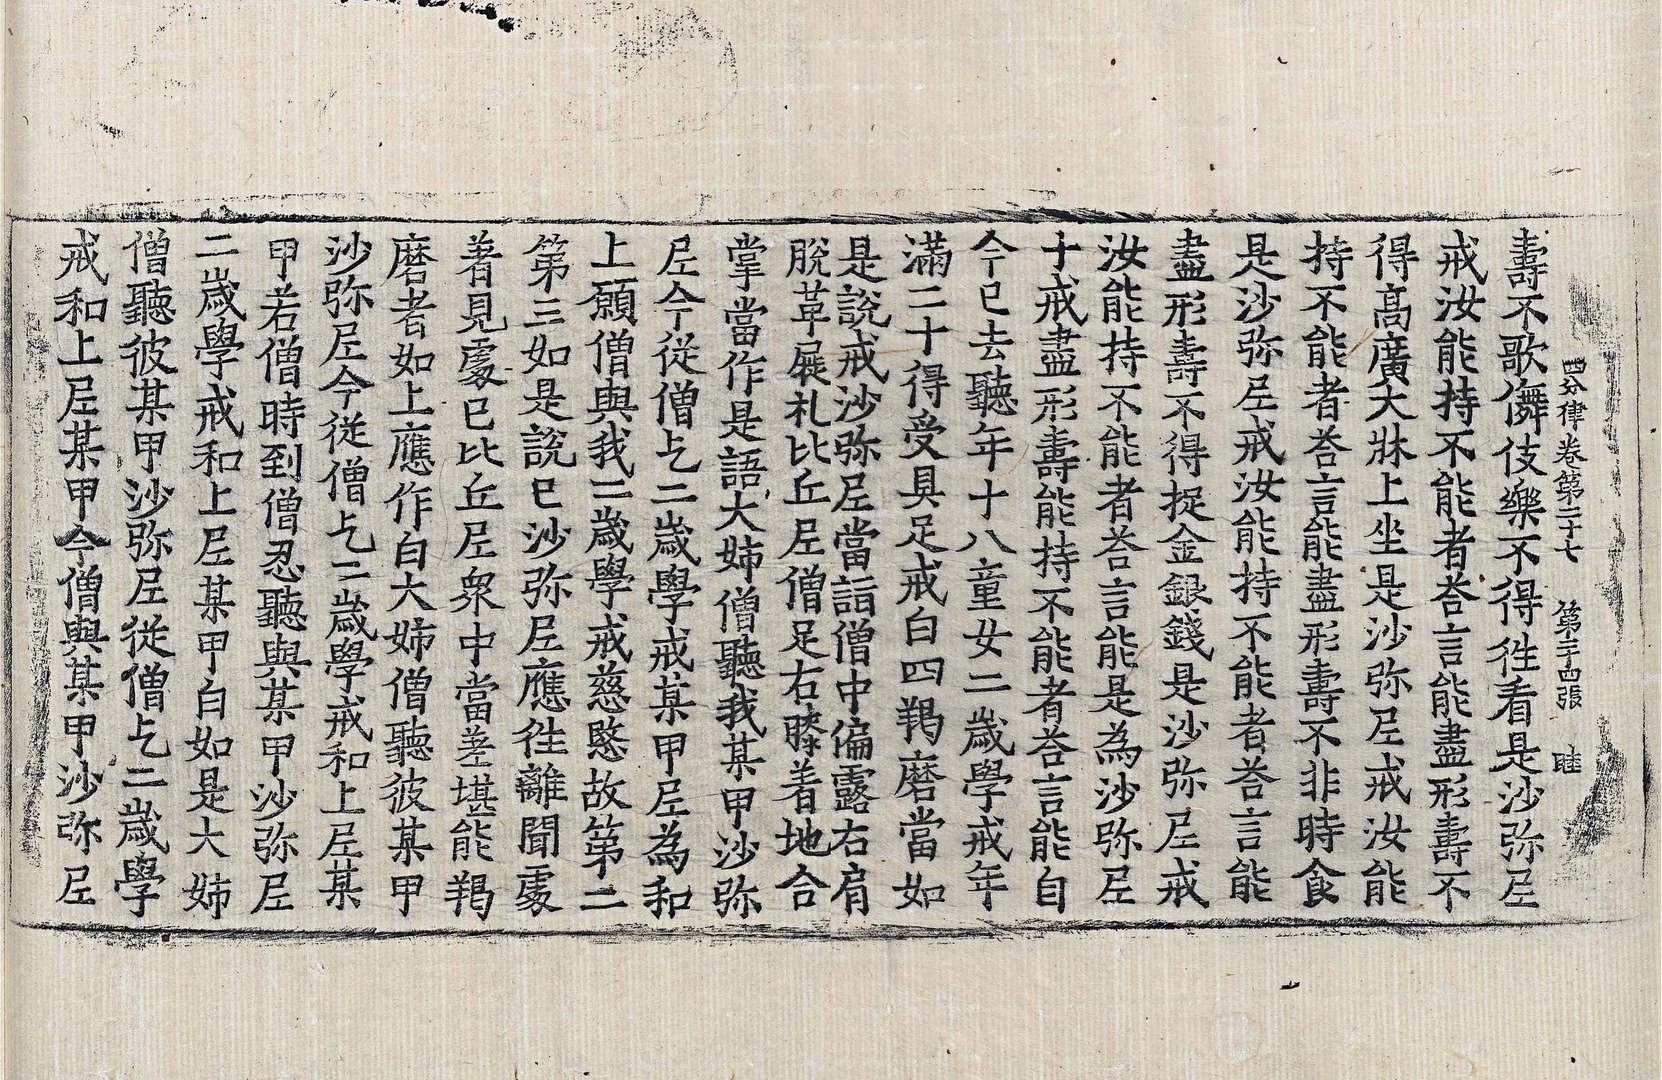 四分律卷第二十七 第二十四張 睦
壽不歌儛伎樂不得徃看是沙弥𡰱
戒汝能持不能者荅言能盡形壽不
得高廣大牀上坐是沙弥𡰱戒汝能
持不能者荅言能盡形壽不非時食
是沙弥𡰱戒汝能持不能者荅言能
盡形壽不得捉金銀錢是沙弥𡰱戒
汝能持不能者荅言能是為沙弥𡰱
十戒盡形壽能持不能者荅言能自
今已去聽年十八童女二歲學戒年
滿二十得受具足戒白四羯磨當如
是說戒沙弥𡰱當詣僧中偏露右肩
脫革屣礼比丘𡰱僧足右膝著地合
掌當作是語大姊僧聽我某甲沙弥
𡰱今從僧乞二歲學戒某甲𡰱為和
上願僧與我二歲學戒慈愍故第二
第三如是說已沙弥𡰱應徃離聞處
著見處已比丘𡰱衆中當差堪能羯
磨者如上應作白大姊僧聽彼某甲
沙弥𡰱今從僧乞二歲學戒和上𡰱某
甲若僧時到僧忍聽與某甲沙弥𡰱
二歲學戒和上𡰱某甲白如是大姊
僧聽彼某甲沙弥𡰱從僧乞二歲學
戒和上𡰱某甲今僧與某甲沙弥𡰱